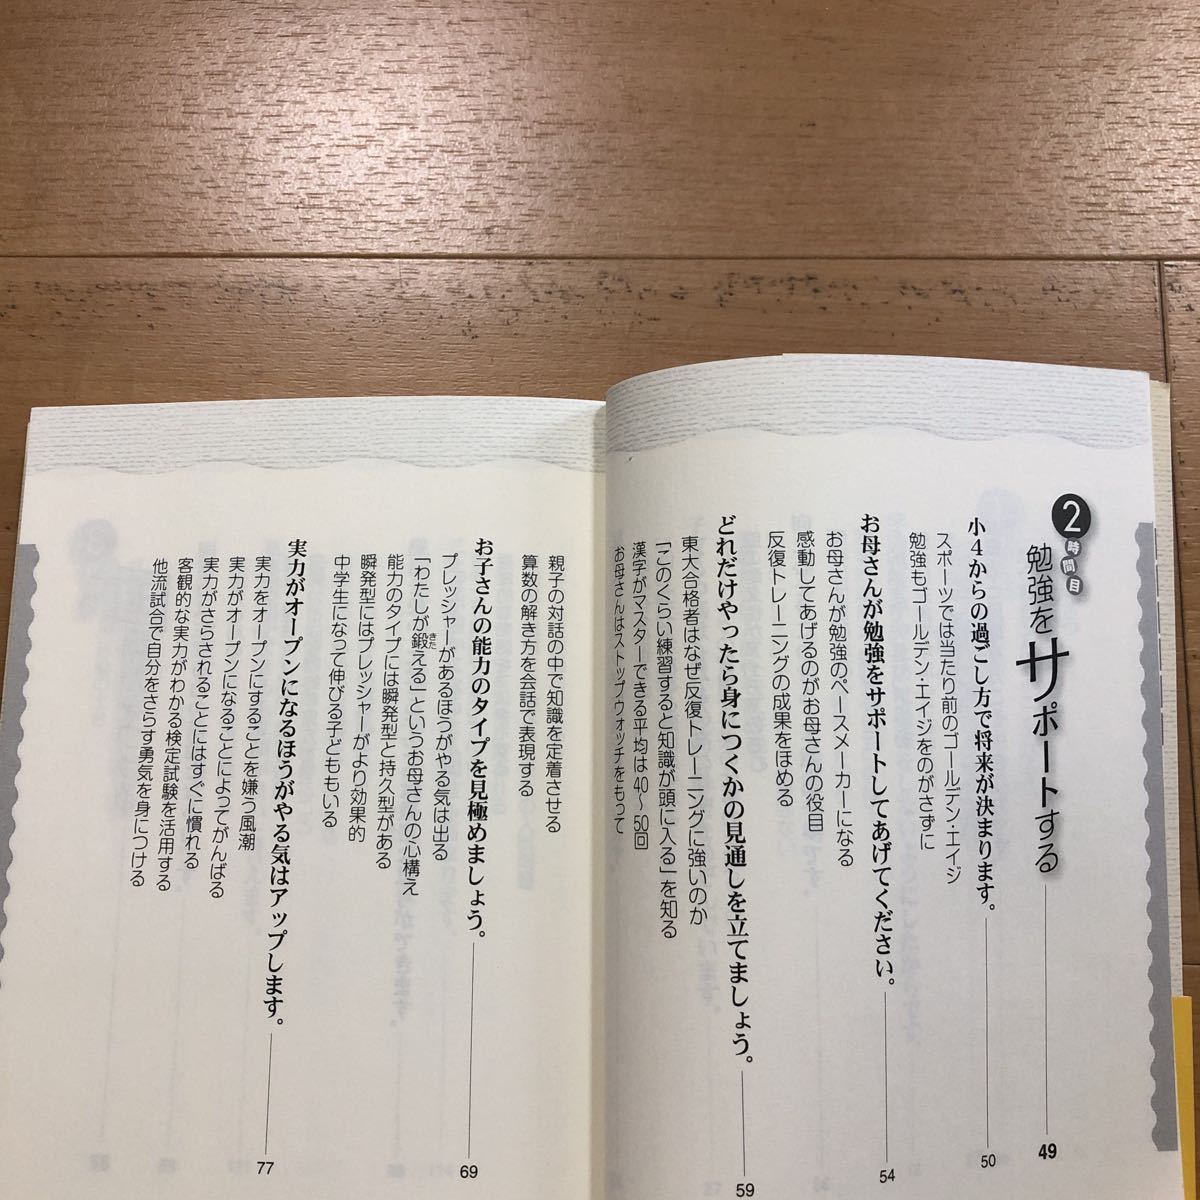 2時間目
勉強をサポートする 49
小4からの過ごし方で将来が決まります。 50
スポーツでは当たり前のゴールデン・エイジ
勉強もゴールデン・エイジをのがさずに
お母さんが勉強をサポートしてあげてください。 54
お母さんが勉強のペースメーカーになる
感動してあげるのがお母さんの役目
反復トレーニングの成果をほめる
どれだけやったら身につくかの見通しを立てましょう。 59
東大合格者はなぜ反復トレーニングに強いのか
「このくらい練習すると知識が頭に入る」を知る
漢字がマスターできる平均は40～50回
お母さんはストップウォッチをもって
親子の対話の中で知識を定着させる
算数の解き方を会話で表現する
お子さんの能力のタイプを見極めましょう。 69
プレッシャーがあるほうがやる気は出る
「わたしが鍛える」というお母さんの心構え
きた
能力のタイプには瞬発型と持久型がある
瞬発型にはプレッシャーがより効果的
中学生になって伸びる子どももいる
実力がオープンになるほうがやる気はアップします。 77
実力をオープンにすることを嫌う風潮
実力がオープンになることによってがんばる
実力がさらされることにはすぐに慣れる
客観的な実力がわかる検定試験を活用する
他流試合で自分をさらす勇気を身につける